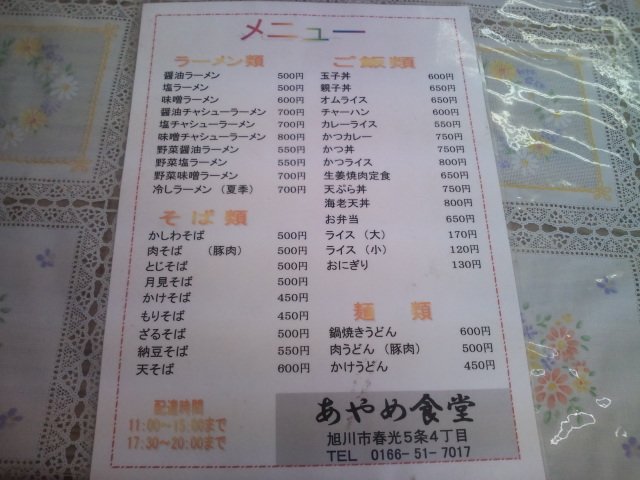 メニュー
ラーメン類
醤油ラーメン 500円
塩ラーメン 500円
味噌ラーメン 600円
醤油チャシューラーメン 700円
塩チャシューラーメン 700円
味噌チャシューラーメン 800円
野菜醤油ラーメン 550円
野菜塩ラーメン 550円
野菜味噌ラーメン 700円
冷しラーメン（夏季） 700円
そば類
かしわそば 500円
肉そば （豚肉） 500円
とじそば 500円
月見そば 500円
かけそば 450円
もりそば 450円
ざるそば 500円
納豆そば 550円
天そば 600円
配達時間
11:00～15:00まで
17:30～20:00まで
ご飯類
玉子丼 600円
親子丼 650円
オムライス 650円
チャーハン 600円
カレーライス 550円
かつカレー 750円
かつ丼 750円
かつライス 800円
生姜焼肉定食 650円
天ぷら丼 750円
海老天丼 800円
お弁当 650円
ライス（大） 170円
ライス（小） 120円
おにぎり 130円
麺類
鍋焼きうどん 600円
肉うどん（豚肉） 500円
かけうどん 450円
あやめ食堂
旭川市春光5条4丁目
TEL 0166-51-7017